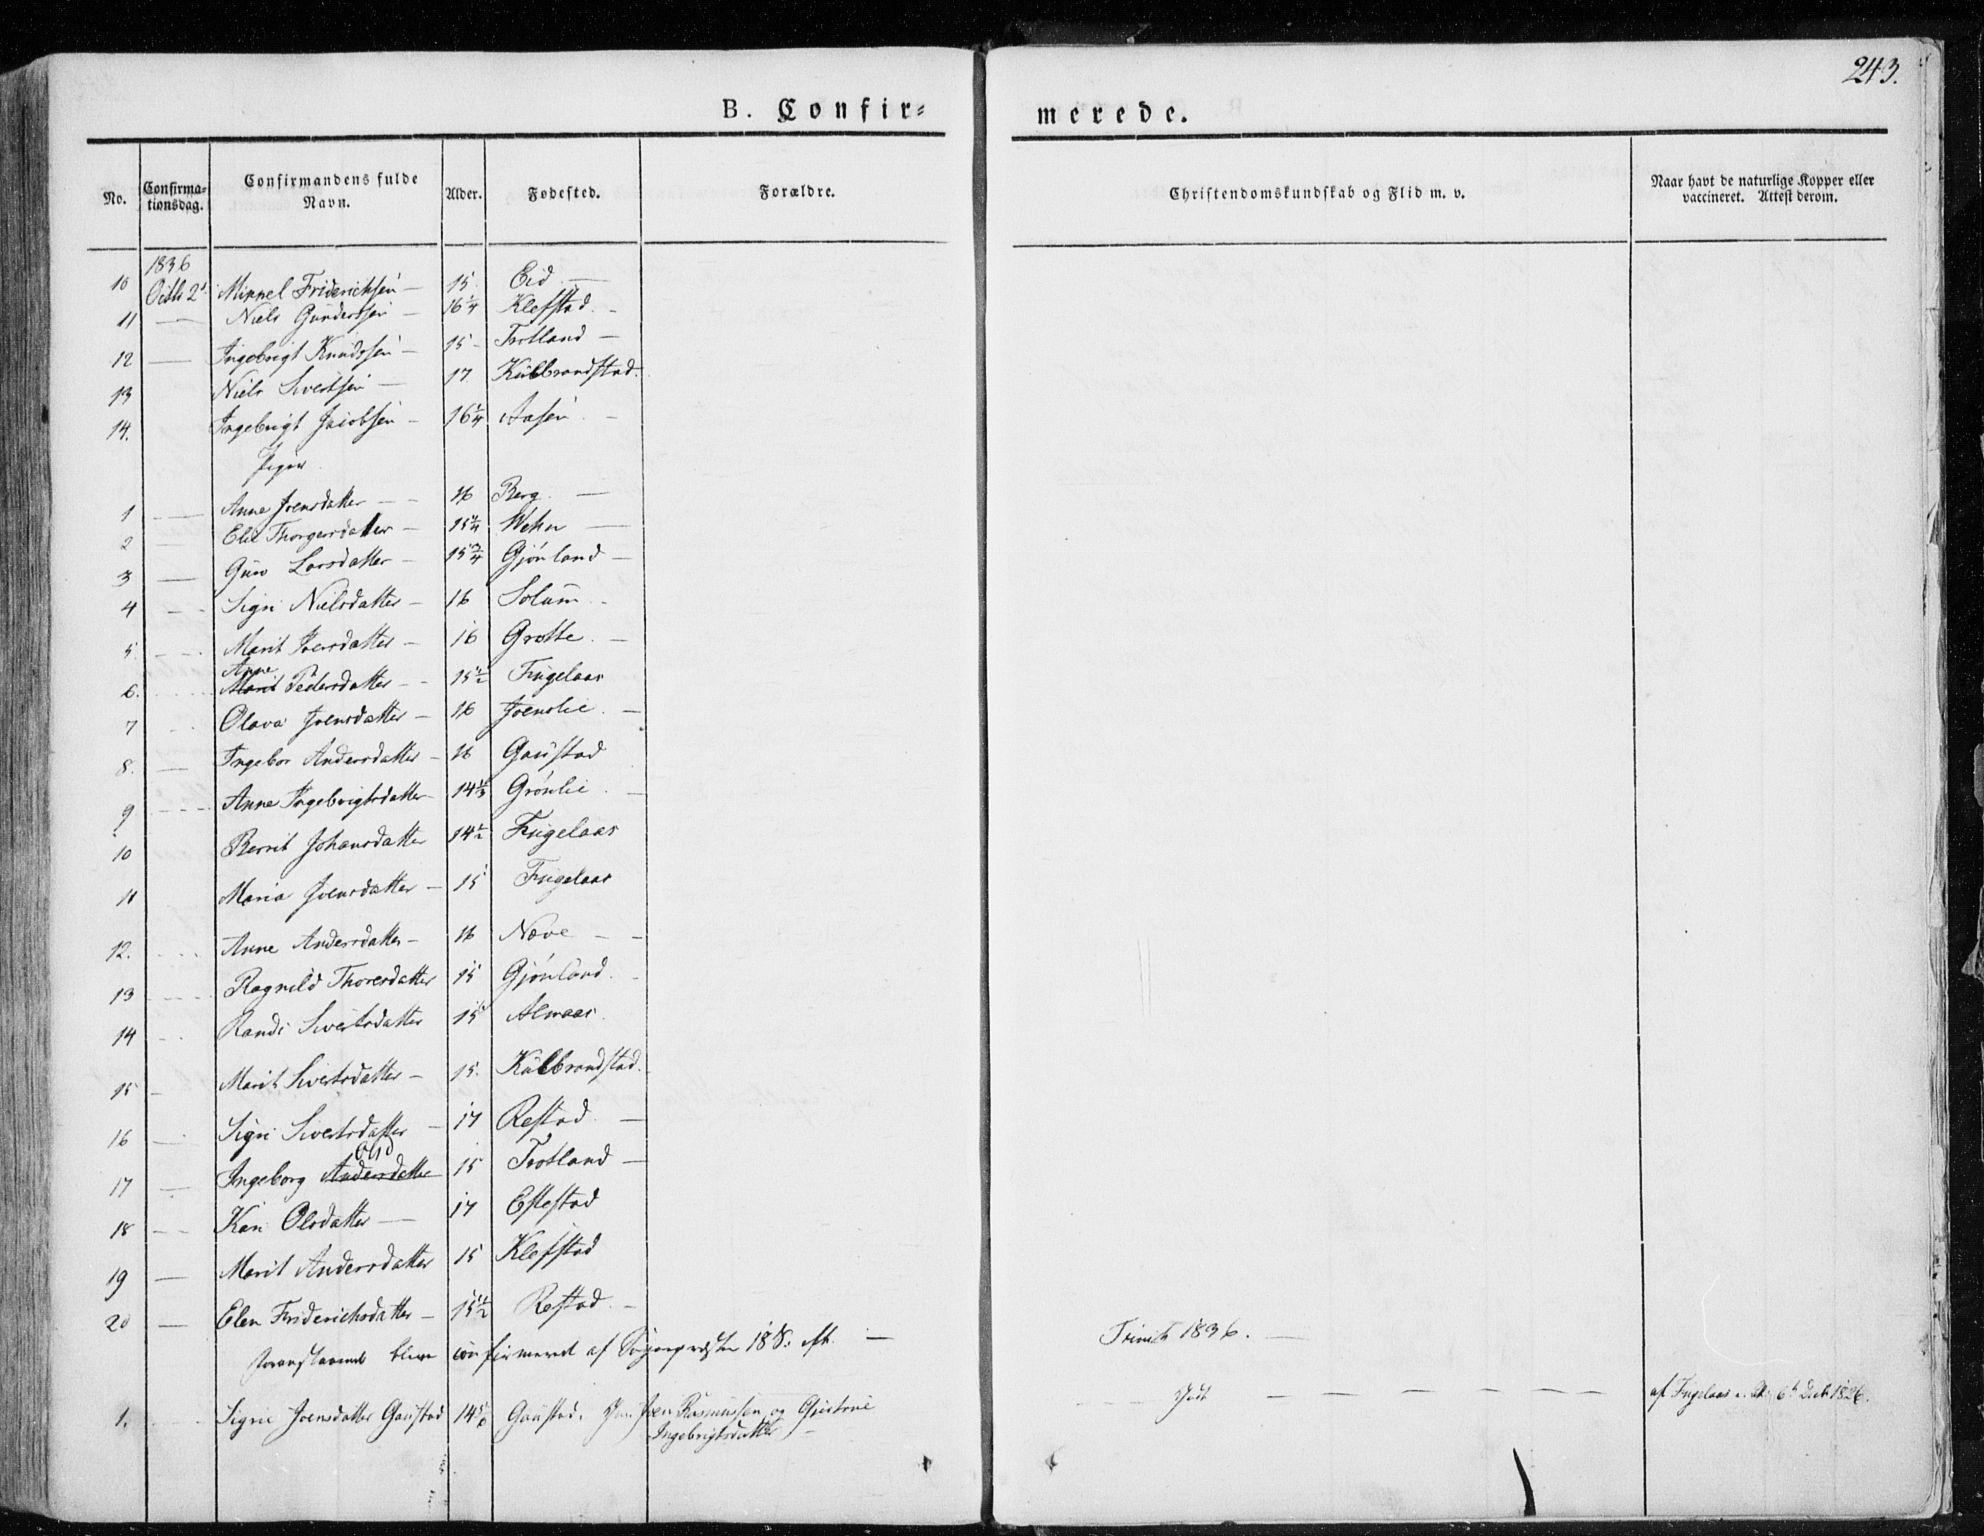 243.
B. Confir=
merede.
No. Confirma-tionsdag. Confirmandens fulde Navn. Alder. Fødested. Forældre. Christendomskundskab og Flid m. v. Naar havt de naturlige Kopper eller vaccineret. Attest derom.
1836
10 Octbr 2d Mikkel Friderichsen — 15 Eid —
11 — Niels Gundersen — 16 1/4 Klefstad —
12 — Ingebrigt Knudssen — 15 — Trotland —
13 Niels Sivertsen — 17 Kulbrandstad.
14. Ingebrigt Jacobsen — 16 1/4 Aasen —
Piger
1 — Anne Joensdatter — 16 Berg —
2 — Eli Thorgersdatter — 15 1/4 Wehn —
3 — Guro Larsdatter — 15 3/4 Gjönland —
4 — Sigri Nielsdatter — 16 Solum —
5 — Marit Iversdatter — 16 Grotte —
Anne
6. Marit Pedersdatter — 15 1/2 Fugelaas
7 Olava Joensdatter — 16 Joenslie —
8. — Ingebor Andersdatter — 16 Gaustad
9 — Anne Ingebrigtsdatter — 14 1/3 Grönlie —
10 Berrit Johansdatter 14 1/2 Fugelaas
11 Maria Joensdatter — 15 Fugelaas
12. Anne Andersdatter — 16 Nave —
13 Ragnild Thoresdatter 15 Gjönland
14 Randi Sivertsdatter 15 Almaas
15 — Marit Sivertsdatter — 15. Kulbrandstad.
16 — Sigri Sivertsdatter — 17 Restad —
Olsd
17 — Ingeborg Andersdatter 15 Trotland —
18 — Kari Olsdatter — 17 Estestad
19 — Marit Andersdatter 15 Klefstad
20 — Elen Friderichsdatter — 15 1/2 Restad —
bleve confirmered af Sognepræsten — Trinit 1836. —
1. Signe Joensdatter Gaustad 14 5/6 Gaustad. Joen Rasmussen og Ingebrigtsdatter — Godt — — — — — — af Fugelaas 6te Decb 1826.